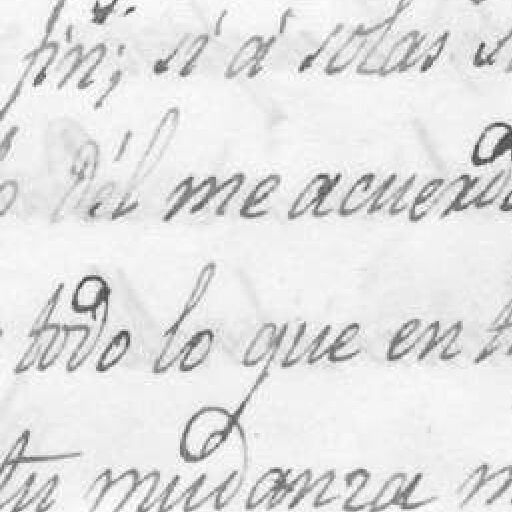 fin; si á solas
Dél me acuerdo
todo lo que en
tu mudanza